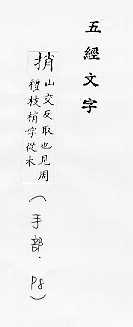 五經文字
捎山交反取也見周
禮枝梢字從木
（手部．P8）